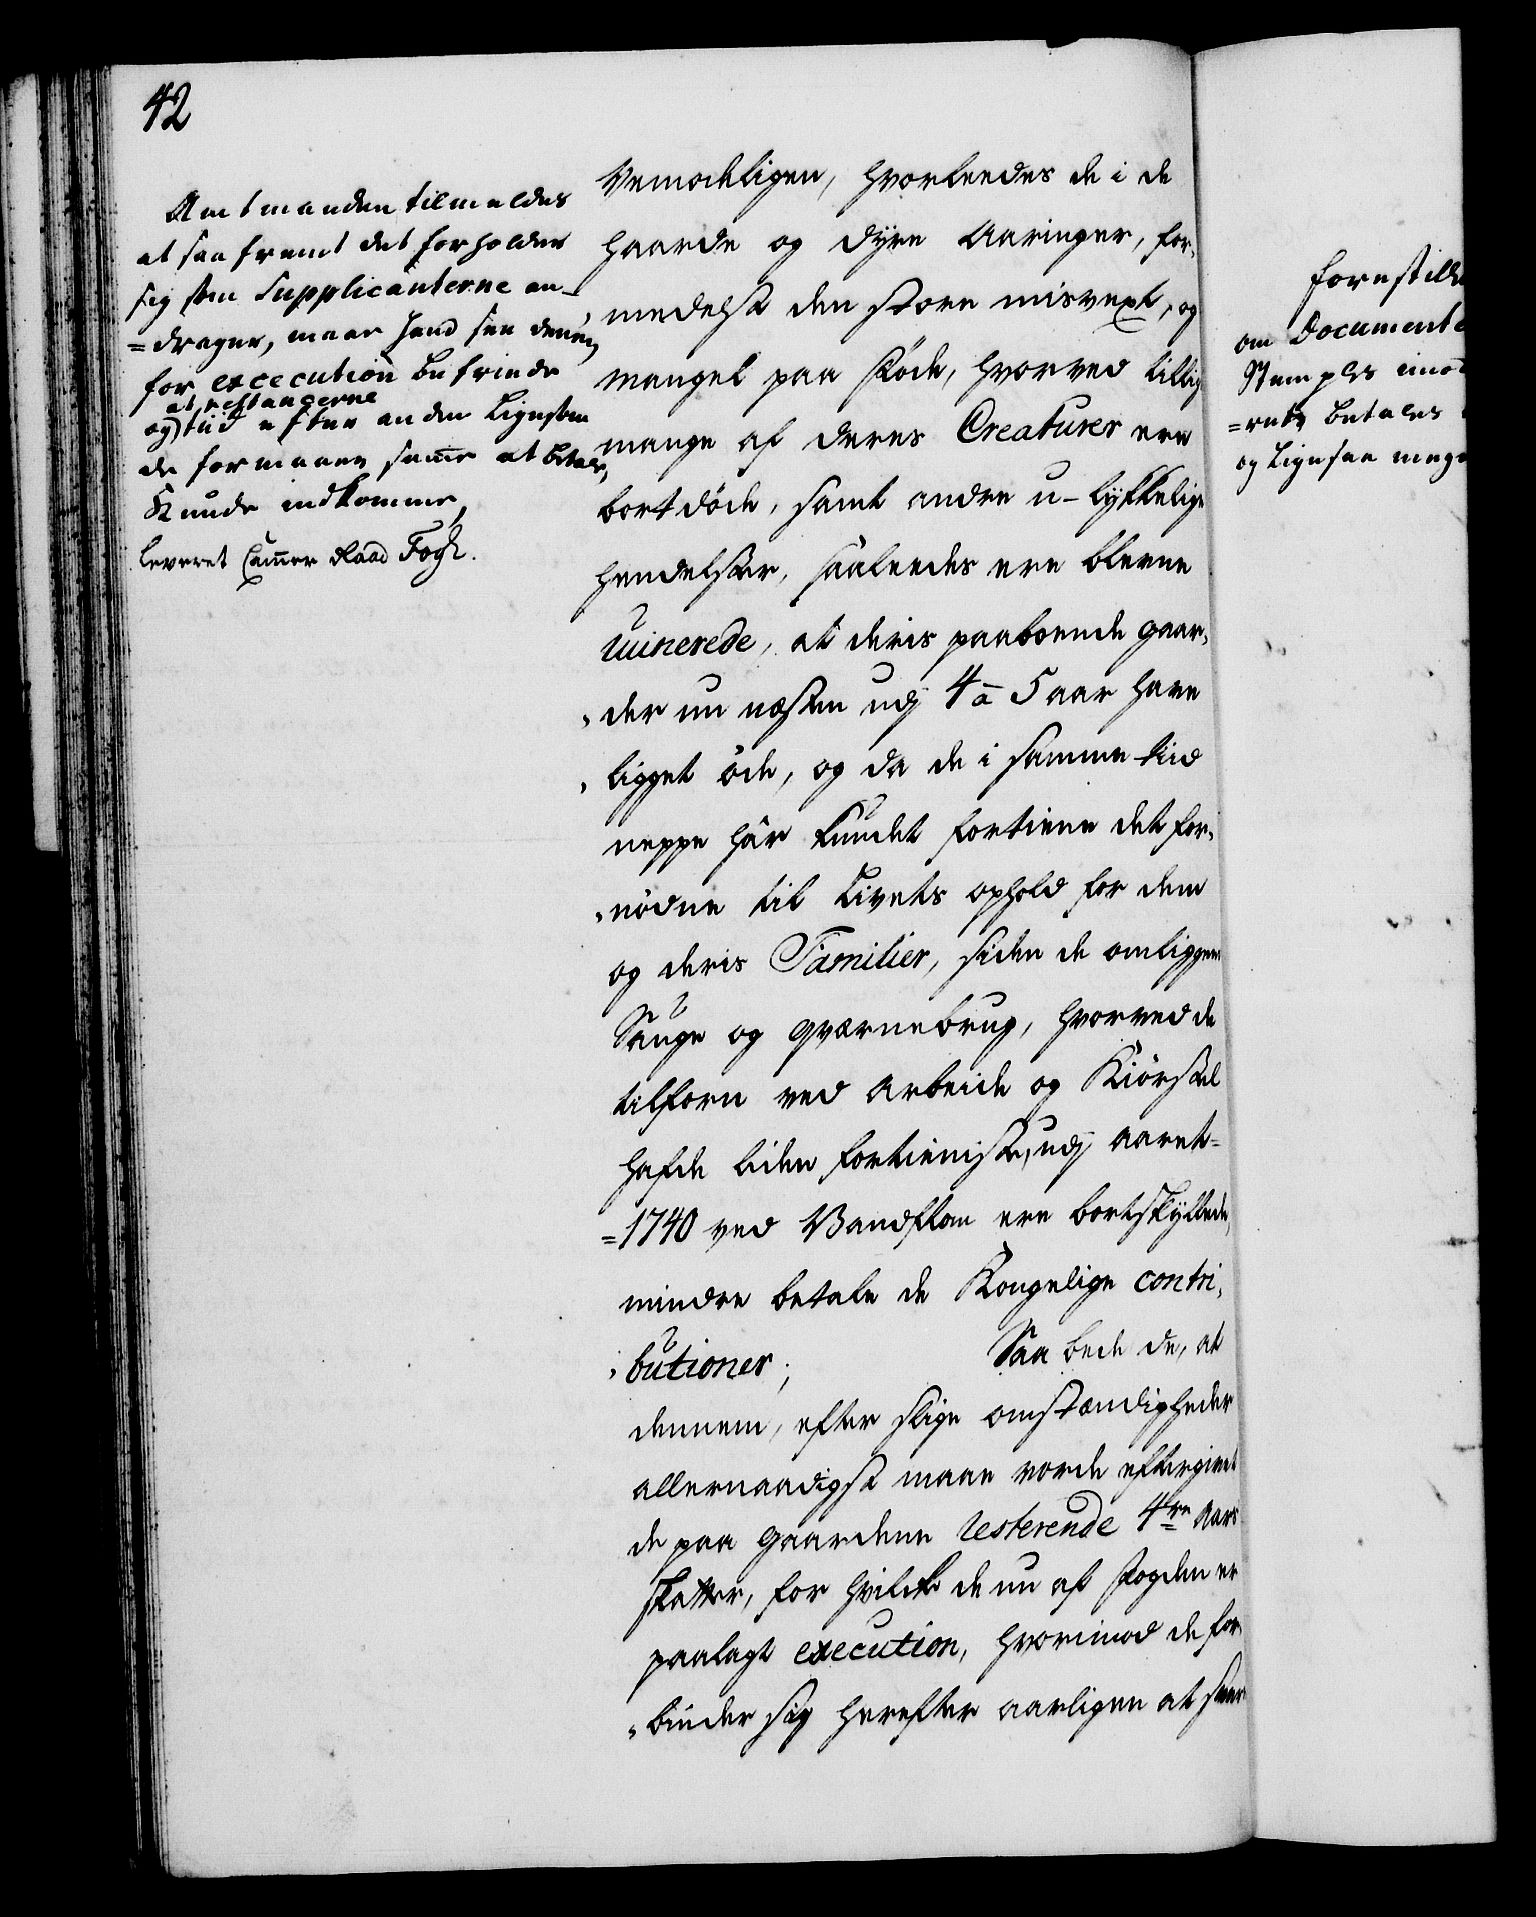 42
Amtmanden tilmeldes
at saa fremt det forholder
sig som Supplicanterne an-
=drager, maae hand saa dennem
for excecution befriede
at restancerne
og tiid efter anden ligesom
de formaaer samme at betale,
Kunde indkomme,
leveret Cammer Raad Fogh.
Vemodeligen, hvorleedes de i de
haarde og dyre Aaringer, for-
medelst den store misvext, og
mangel paa Föde, hvorved tillig
mange af deres Creaturer ere
bortdöde, samt andre u-lykkelige
hendelser, saaleedes ere blevne
ruinerede, at deris paaboende gaar-
der nu næsten udj 4 à 5 aar have
ligget öde, og da de i samme tiid
neppe har kundet fortiene det for-
nödne til Livets ophold for dem
og deris Familier, siden de omliggen
Sauge og qværnebrug, hvorved de
tilforn ved arbeide og Kiörsel
hafde liden fortieniste, udj aaret
=1740 ved Vandflom ere bortskyllede,
mindre betale de Kongelige contri-
butioner; Saa bede de, at
dennem, efter slige omstændigheder
allernaadigst maae vorde eftergivet
de paa gaardene resterende 4re Aars
skatter, for hvilke de nu af Fogden er
paalagt execution, hvorimod de for-
binder sig herefter aarligen at svare
forestille
om Documente
Stemples imod
=rets betales
og ligesaa meget